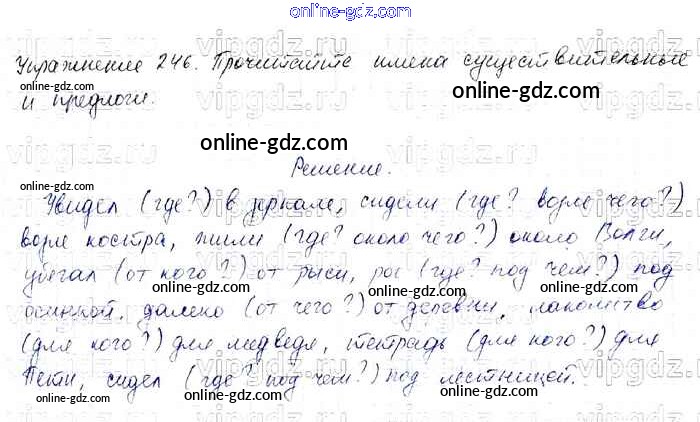 online-gdz.com
Упражнение 246. Прочитайте имена существительные
и предлоги.
online-gdz.com
online-gdz.com
Решение.
Увидел (где?) в зеркале, сидели (где? возле чего?)
возле костра, жили (где? около чего?) около Волги,
убегал (от кого?) от рыси, рос (где? под чем?) под
осинкой, далеко (от чего?) от деревни, лакомство
(для кого?) для медведя, тетрадь (для кого?) для
Пети, сидел (где? под чем?) под лестницей.
online-gdz.com
online-gdz.com
online-gdz.com
online-gdz.com
online-gdz.com
online-gdz.com